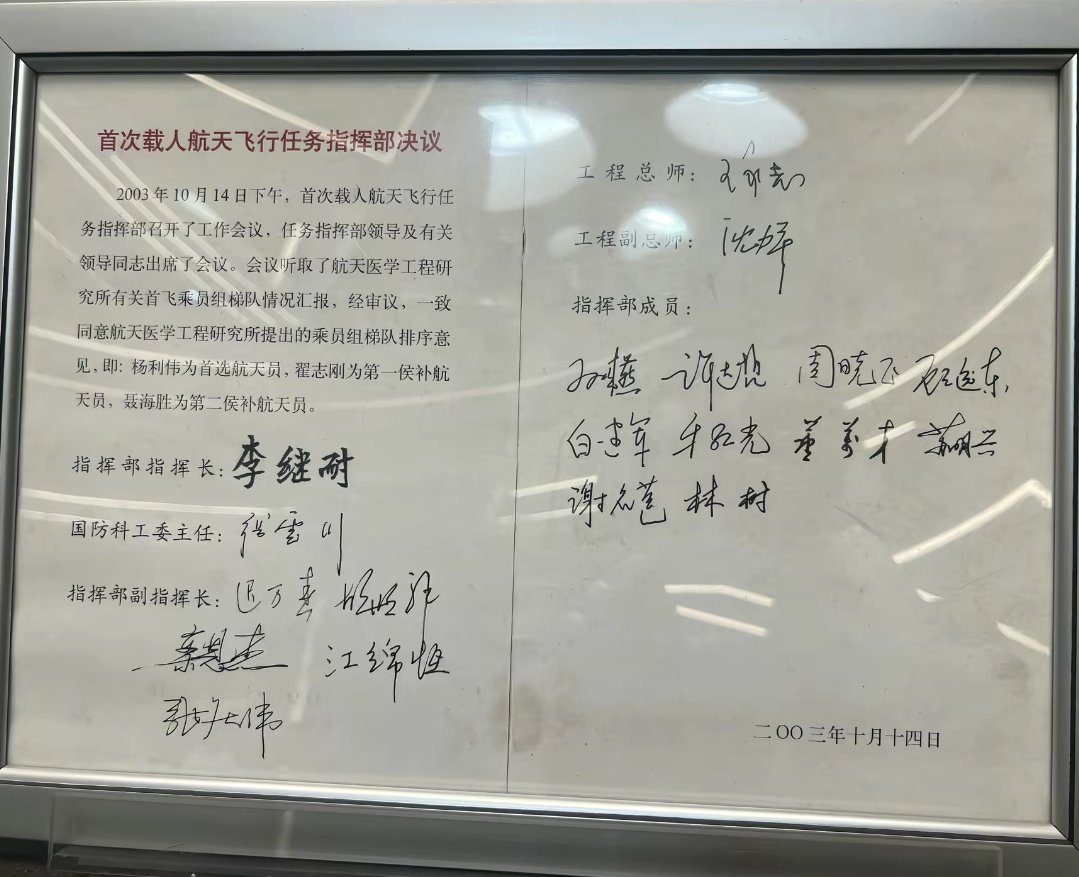 首次载人航天飞行任务指挥部决议
2003年10月14日下午，首次载人航天飞行任
务指挥部召开了工作会议，任务指挥部领导及有关
领导同志出席了会议。会议听取了航天医学工程研
究所有关首飞乘员组梯队情况汇报，经审议，一致
同意航天医学工程研究所提出的乘员组梯队排序意
见，即：杨利伟为首选航天员，翟志刚为第一侯补航
天员，聂海胜为第二侯补航天员。
指挥部指挥长：李继耐
国防科工委主任：张云川
指挥部副指挥长：迟万春
江绵恒
工程总师：王永志
工程副总师：沈力平
指挥部成员：
许达哲 周晓飞 顾逸东
白建军 牛红光 董万才 苏明兴
谢名苞 林树
二〇〇三年十月十四日